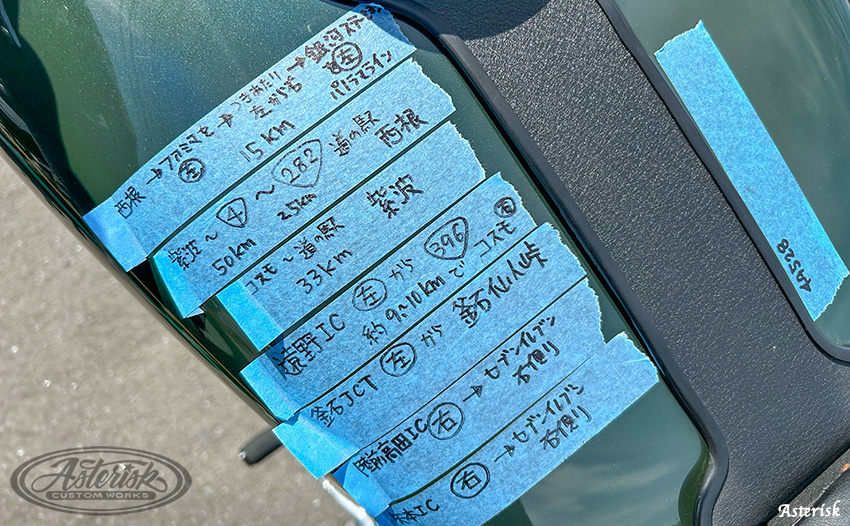 西根→ファミマを→つきあたり→銀河ステ
左 左から右 左又
15km パノラマライン
紫波〜4〜282 道の駅 西根
50km 25km
コスモ〜道の駅 紫波
33km
遠野IC 左 から 396 右
約9〜10kmで コスモ
釜石JCT 左 から 釜石仙人峠
陸前高田IC 右→セブンイレブン
右側り
本IC 右→セブンイレブン
右側り
4A528
Asterisk
CUSTOM WORKS
Asterisk